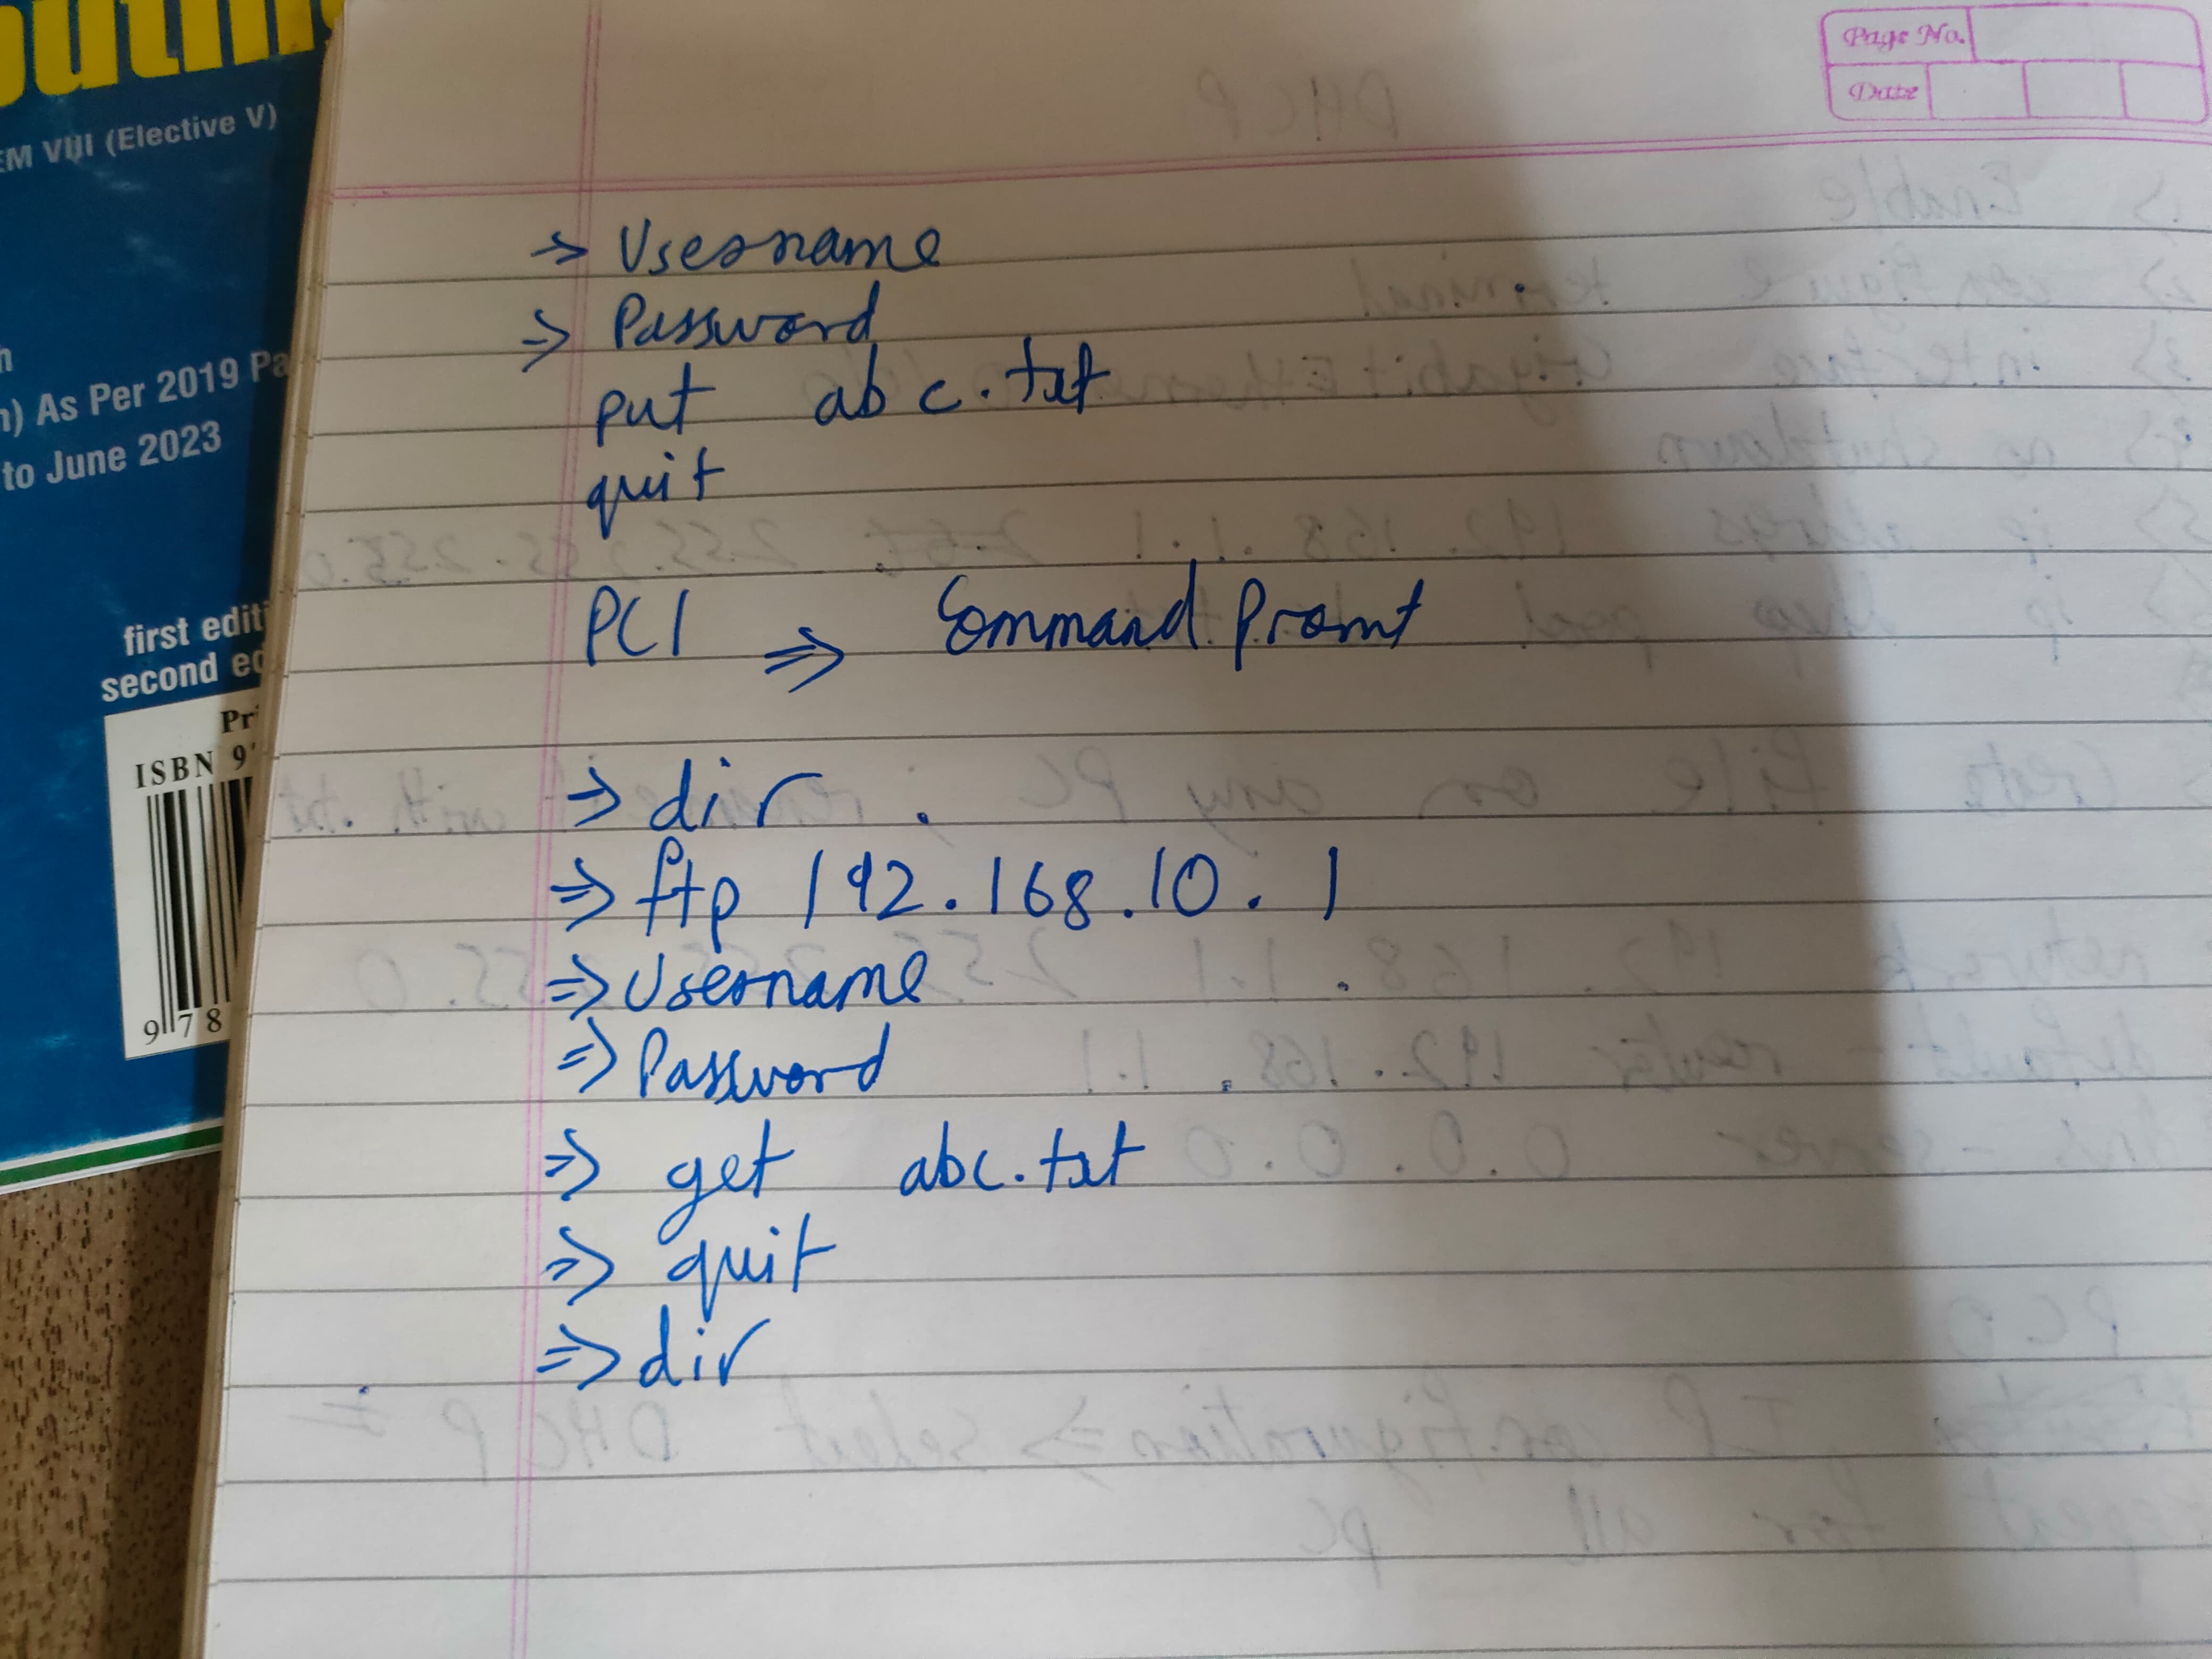 EM VIII (Elective V)
As Per 2019 Pa
to June 2023
first editi
second ed
Pri
ISBN 9
9 78
Page No.
Date
⇒ Username
⇒ Password
put abc.txt
quit
PC1 ⇒ Command Promt
⇒ dir
⇒ ftp 192.168.10.1
⇒ Username
⇒ Password
⇒ get abc.txt
⇒ quit
⇒ dir